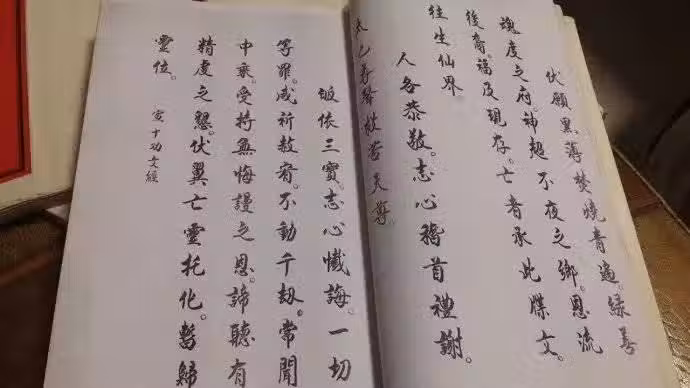 伏願黑簿焚燒青函。錄善
魂度之府。神超不夜之鄉。恩流
後裔。福及現存。亡者承此牒文。
往生仙界。
人各恭敬。志心稽首禮謝。
太乙尋聲救苦天尊。
皈依三寶。志心懺誨。一切
等罪。咸祈赦宥。不動千劫。常聞
中乘。受持無悔謾之恩。諦聽有
精虔之懇。伏冀亡靈托化。暫歸
靈位。
宣十功文經